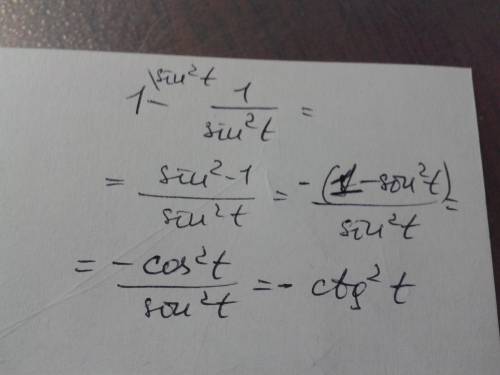 1 -^{\sin² t} 1/sin² t =
= (sin² - 1)/(sin² t) = -(1 - sin² t)/(sin² t) =
= (-cos² t)/(sin² t) = - ctg² t